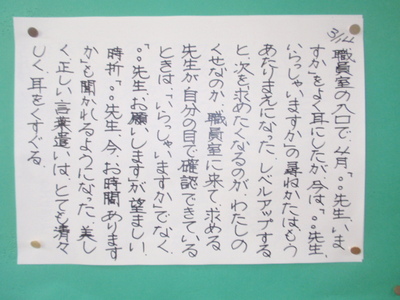 3/14 職員室の入口で、4月「。。先生、いま
すか」をよく耳にしたが、今は、「。。先生、
いらっしゃいますか」の尋ねかたは、もう
あたりまえになった。レベルアップする
と、次を求めたくなるのが、わたしの
くせなのか、職員室に来て、求める
先生が自分の目で確認できている
ときは、「いらっしゃいますか」でなく、
「。。先生、お願いします」が望ましい。
時折、「。。先生、今、お時間あります
か」も聞かれるようになった。美し
く正しい言葉遣いは、とても清々
しく、耳をくすぐる。